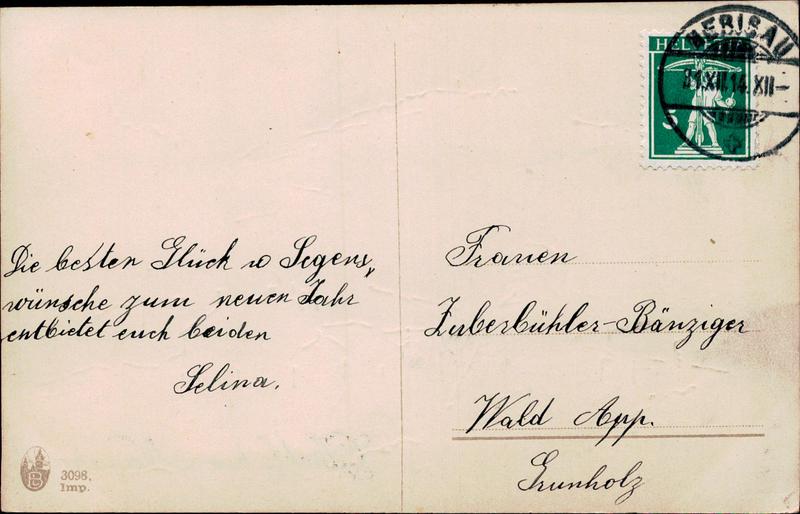 HERISAU
HELVETIA
31.XII.14.XII-
5
Die besten Glück u Segens„
wünsche zum neuen Jahr
entbietet euch beiden
Selina.
Frauen
Zuberbühler-Bänziger
Wald App.
Grunholz
3098.
Imp.